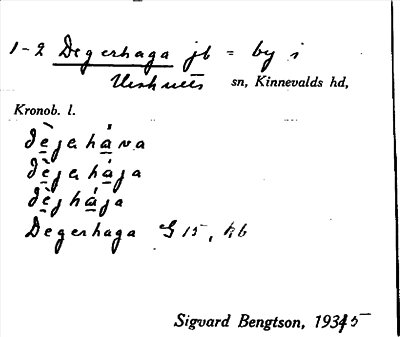 1-2 Degerhaga jb = by i
sn, Kinnevalds hd,
Kronob. l.
dèjeháva
dèjehája
dèjhája
Degerhaga G 15, kb
Sigvard Bengtson, 1934 5